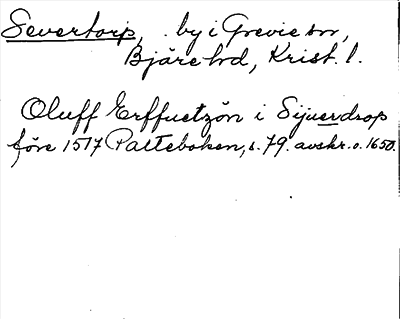 Severtorp, by i Grevie sn,
Bjäre hd, Krist. l.
Oluff Erffuetzön i Sijuerdrop
före 1517 Palteboken, s. 79. avskr. o. 1650.